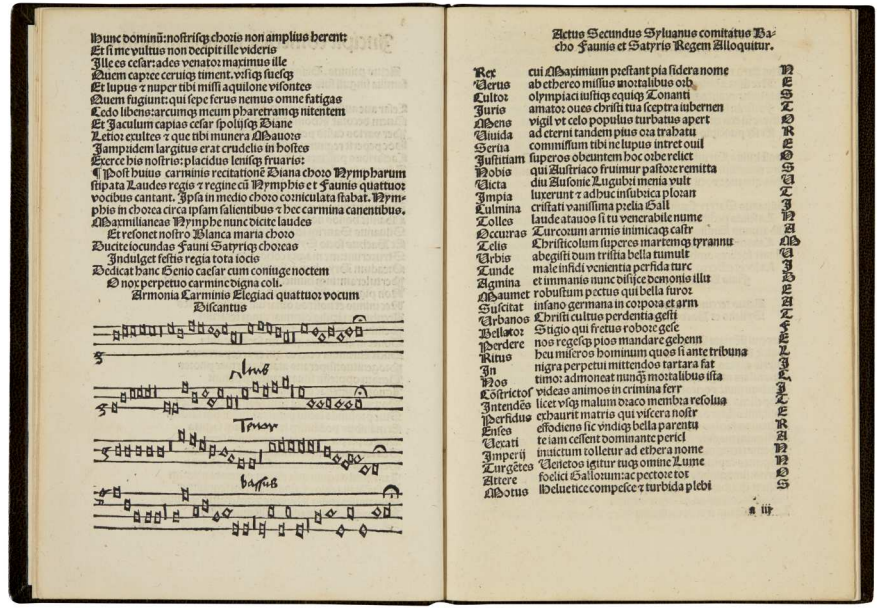 Nunc dominũ: nostrisqꝫ choris non amplius herent:
Et si me vultus non decipit ille videris
Ille es cesar: ades venator maximus ille
Quem capree ceruiqꝫ timent. vrsiqꝫ suesqꝫ
Et lupus ⁊ nuper tibi missi aquilone visontes
Quem fugiunt: qui sepe ferus nemus omne fatigas
Cedo libens: arcumqꝫ meum pharetramqꝫ nitentem
Et Jaculum capias cesar spolijsqꝫ Diane
Letior exultes ⁊ que tibi munera Mauors
Jampridem largitus erat crudelis in hostes
Exerce his nostris: placidus lenisqꝫ fruaris:
¶ Post huius carminis recitationē Diana choro Nympharum
stipata Laudes regis ⁊ regine cũ Nymphis et Faunis quattuor
vocibus cantant. Ipsa in medio choro corniculata stabat. Nym-
phis in chorea circa ipsam salientibus ⁊ hec carmina canentibus.
Maximilianeas Nymphe nunc dicite laudes
Et resonet nostro Blanca maria choro
Ducite iocundas Fauni Satyriqꝫ choreas
Indulget festis regia tota iocis
Dedicat hanc Genio caesar cum coniuge noctem
O nox perpetuo carmine digna coli.
Armonia Carminis Elegiaci quattuor vocum
Discantus
Altus
Tenor
bassus
Actus Secundus Syluanus comitatus Ba-
cho Faunis et Satyris Regem Alloquitur.
Rex cui Maximium prestant pia sidera nome N
Uerus ab ethereo missus mortalibus orb E
Cultor olympiaci iustiqꝫ equiqꝫ Tonanti S
Juris amator oues christi tua sceptra iubernen T
Mens vigil vt celo populus turbatus apert O
Uiuida ad eterni tandem pius ora trahatu R
Serua commissum tibi ne lupus intret ouil E
Justitiam superos obeuntem hoc orbe relict O
Nobis qui Austriaco fruimur pastore remitta S
Uicta diu Ausonie Lugubri menia vult U
Impia luxerunt ⁊ adhuc insubrica plorant T
Culmina cristati vanissima prelia Gall J
Tolles laude atauos si tu venerabile nume N
Occurras Turcorum armis inimicaqꝫ castr A
Telis Christicolum superes martemqꝫ tyrannu M
Urbis abegisti dum tristia bella tumult U
Tunde male infidi venientia perfida turc J
Agmina et immanis nunc disijce demonis illu D
Maumet robustum pectus qui bella furor E
Suscitat insano germana in corpora et arm A
Urbanos Christi cultus perdentia gesti T
Bellator Stigio qui fretus robore gese F
Perdere nos regesqꝫ pios mandare gehenn E
Ritus heu miseros hominum quos si ante tribuna L
In nigra perpetui mittendos tartara fat J
Nos timor admoneat nunqꝫ mortalibus ista C
Cōstrictos videas animos in crimina ferr J
Intendēs licet vsqꝫ malum draco membra resolua T
Perfidus exhaurit matris qui viscera nostr E
Enses effodiens sic vndiqꝫ bella parentu R
Uexati te iam cessent dominante pericl A
Imperij inuictum tolletur ad ethera nome N
Turgētes Uenetos igitur tuqꝫ omine Lume N
Attere foelici Gallorum: ac pectore tot O
Motus Heluetice compesce ⁊ turbida plebi S
a iij